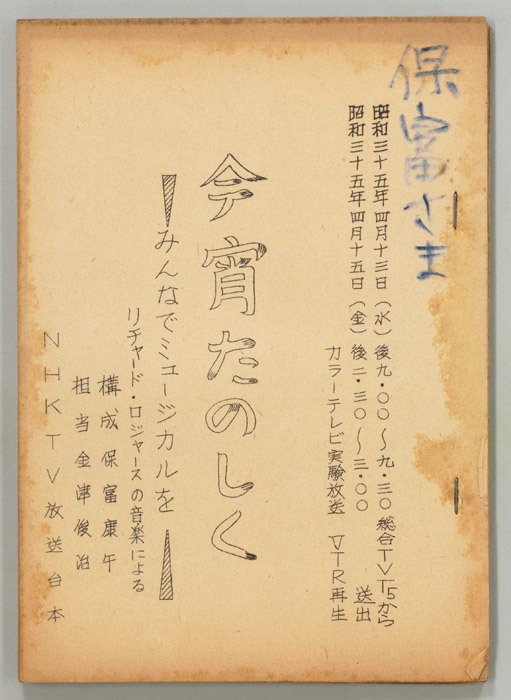 保富さま
昭和三十五年四月十三日(水)後九・〇〇~九・三〇 総合TVT5から送出
昭和三十五年四月十五日(金)後二・三〇~三・〇〇
カラーテレビ実験放送 VTR再生
今宵たのしく
みんなでミュージカルを
リチャード・ロジャースの音楽による
構成 保富康午
担当 金津俊治
NHKTV放送台本